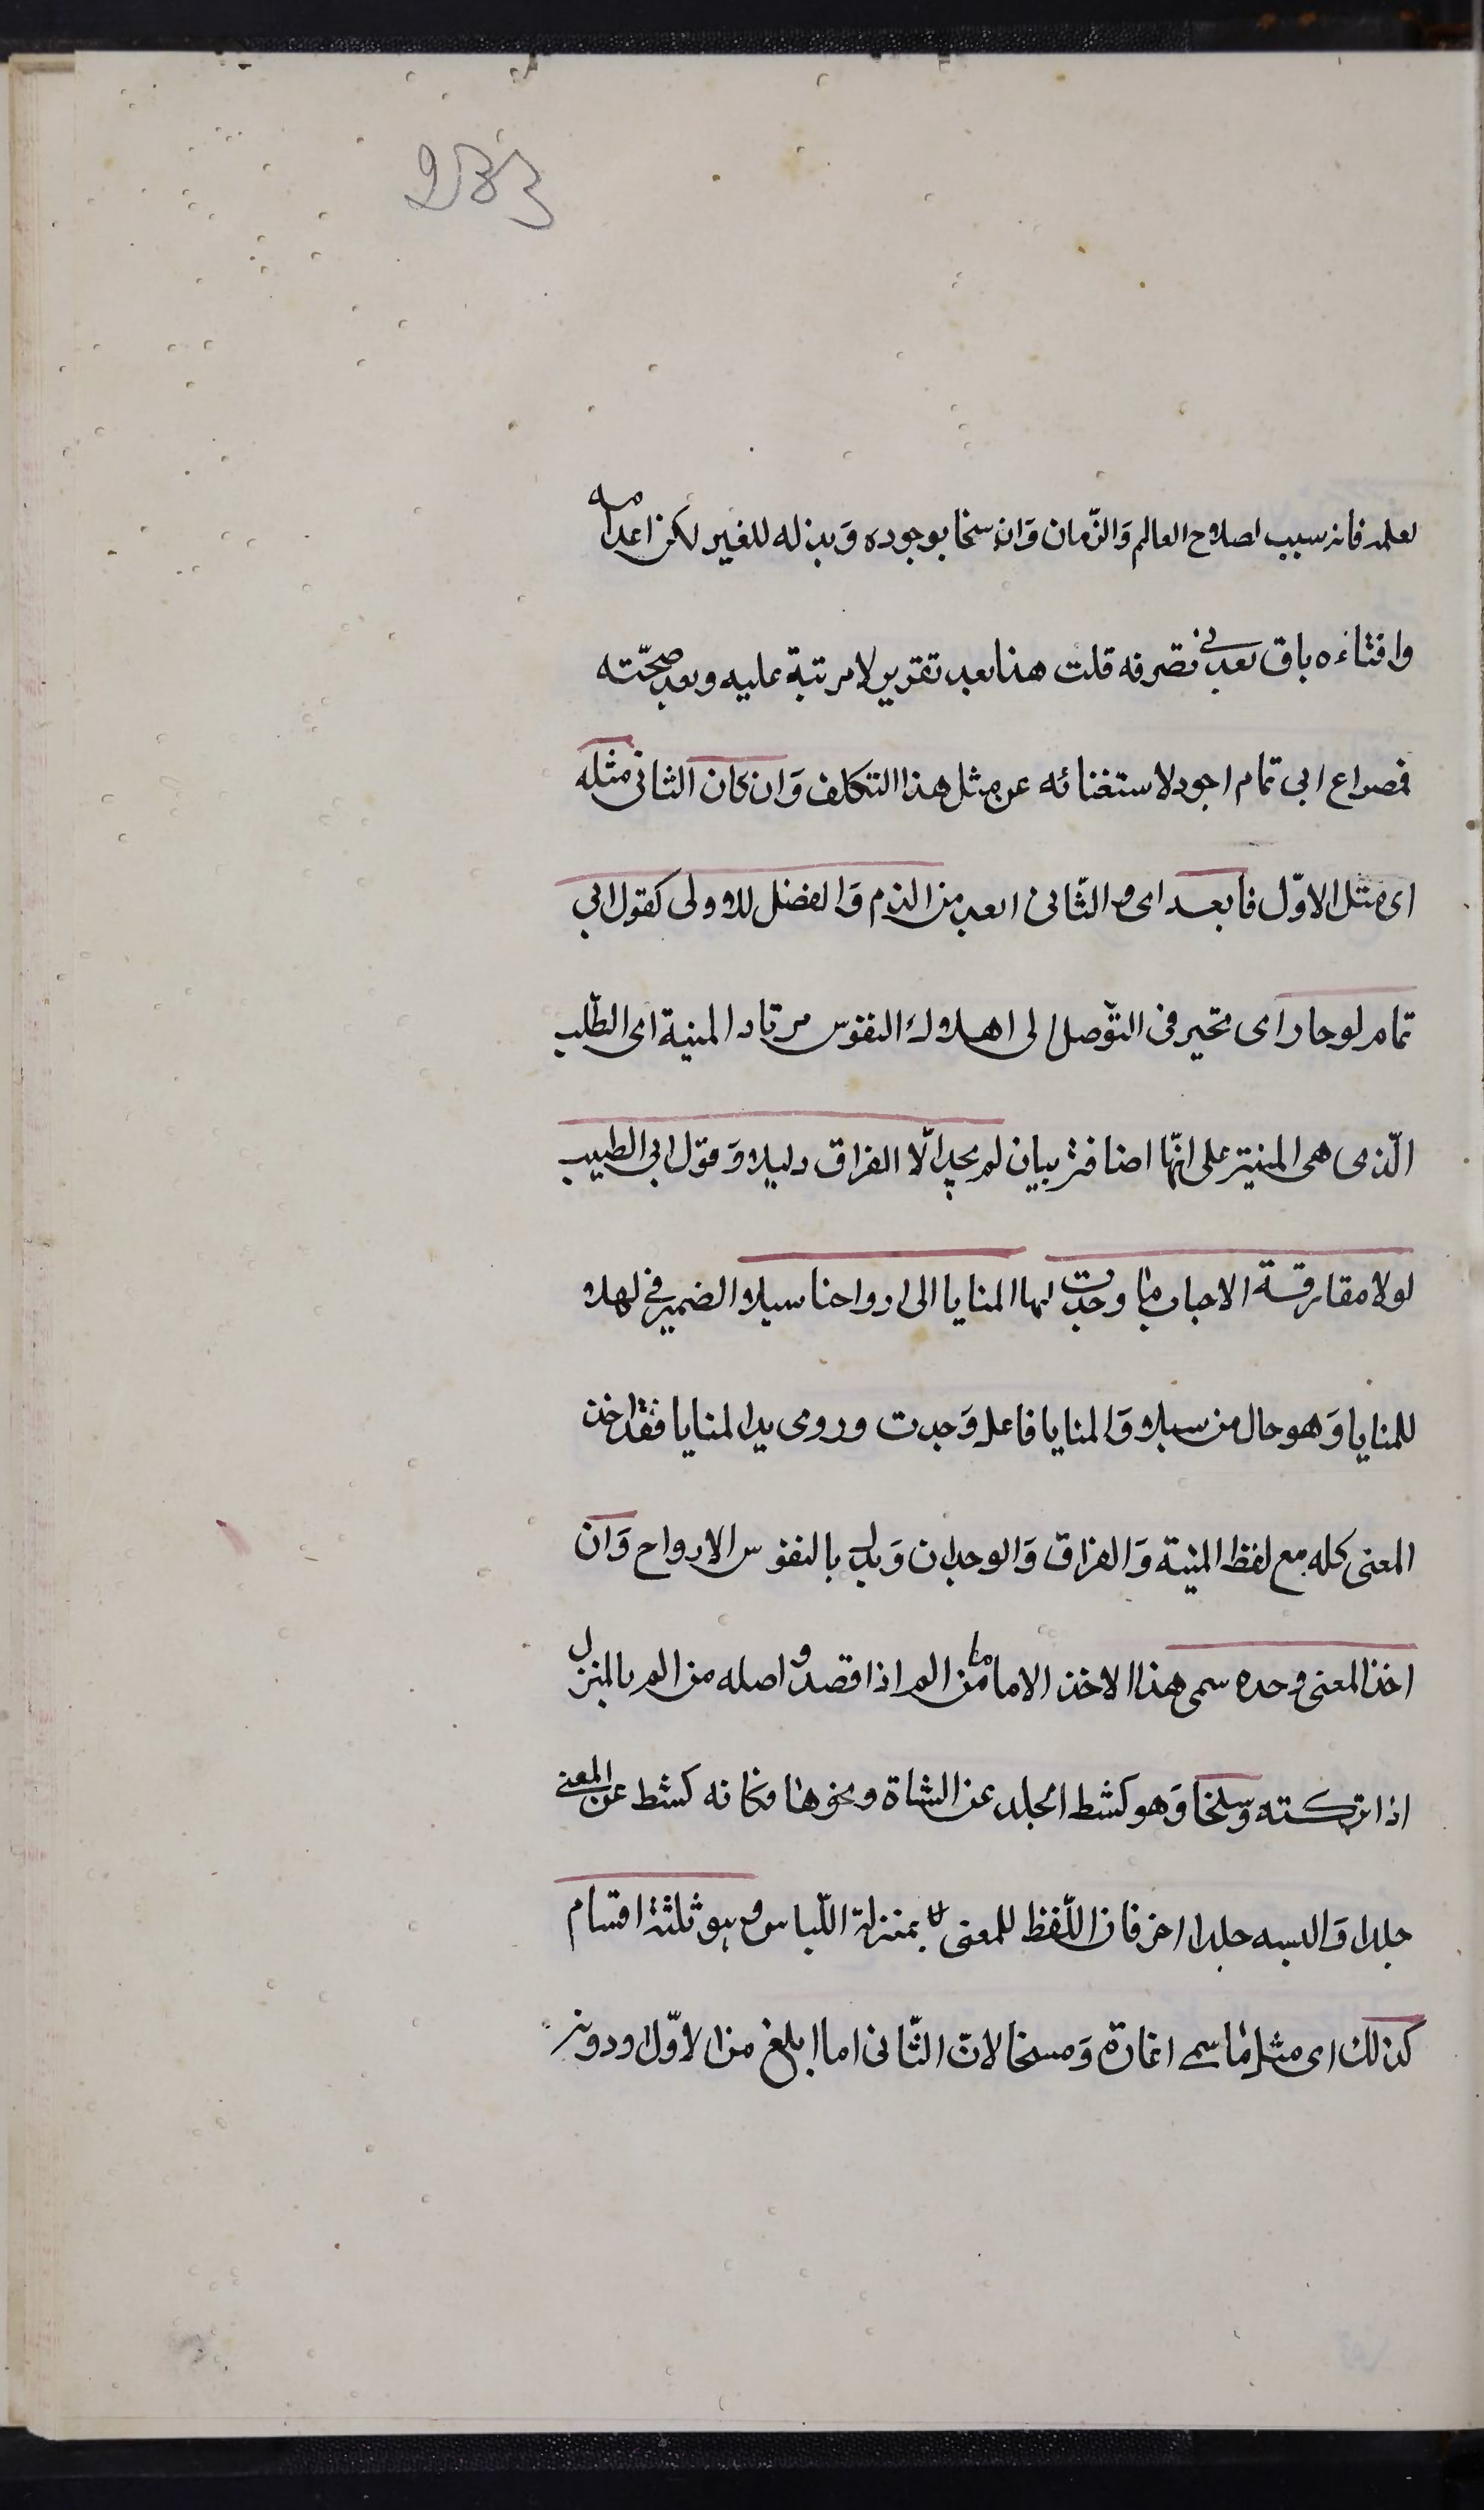 233
لعلمه فانه سبب لصلاح العالم وَالزّمان وَان سخا بوجوده وَبذله للغير لكن اعدامه
وافنائه باق بعد فى تصرفه قلت هذا بعد تقريره لا مرتبة عليه وبعد صحّته
فمصراع ابى تمام اجود لاستغنائه عن مثل هذا التكلف وَان كان الثانى مثله
اى مثل الاوّل فابعد اى فالثّانى ابعد من الذم وَالفضل للاولى كقول ابى
تمام لو حار اى تحير فى التوّصل الى اهلاك النفوس مرتاد المنية اى الطّلب
الّذى هى المنية على انّها اضافة بيان لم يجد الّا الفراق دليلا وَقول ابى الطيب
لولا مفارقة الاحباب ما وجدت لها المنايا الى ارواحنا سبلا الضمير فى لها
للمنايا وَهو حال من سبلا وَالمنايا فاعل وَجدت وروى يد المنايا فقد اخذ
المعنى كله مع لفظ المنية وَالفراق وَالوجدان وَبدل بالنفوس الارواح وَان
اخذ المعنى وحده سمى هذا الاخذ الماما من الم اذا قصد واصله من الم بالمنزل
اذا تركته وسلخا وَهو كشط الجلد عن الشاة ونحوها فكانه كشط عن المعنى
جلدا وَالبسه جلدا اخر فان اللّفظ للمعنى بمنزلة اللّباس وهو ثلثة اقسام
كذلك اى مثل ما سمى اغارة وَمسخا لانّ الثّانى اما ابلغ من الاوّل او دونه